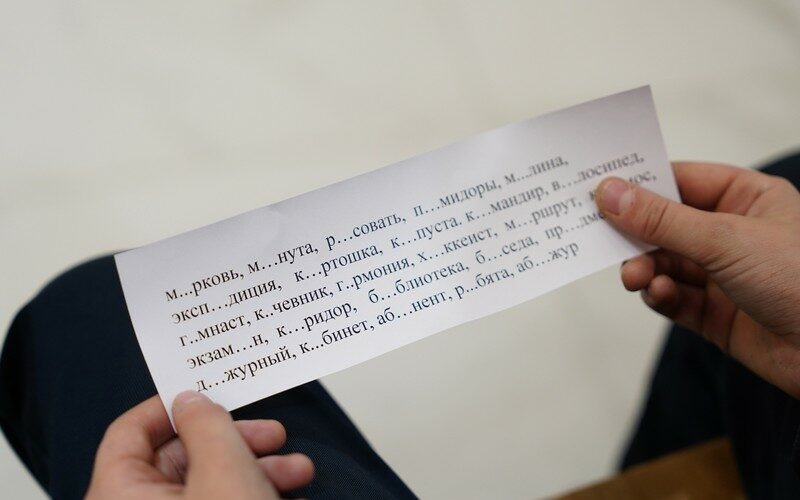 м...рковь, м...нута, р...совать, п...мидоры, м...лина,
эксп...диция, к...ртошка, к...пуста. к...мандир, в...лосипед,
г..мнаст, к..чевник, г..рмония, х...ккеист, м...ршрут,
экзам...н, к...ридор, б...блиотека, б...седа,
д...журный, к...бинет, аб...нент, р...бята, аб...жур